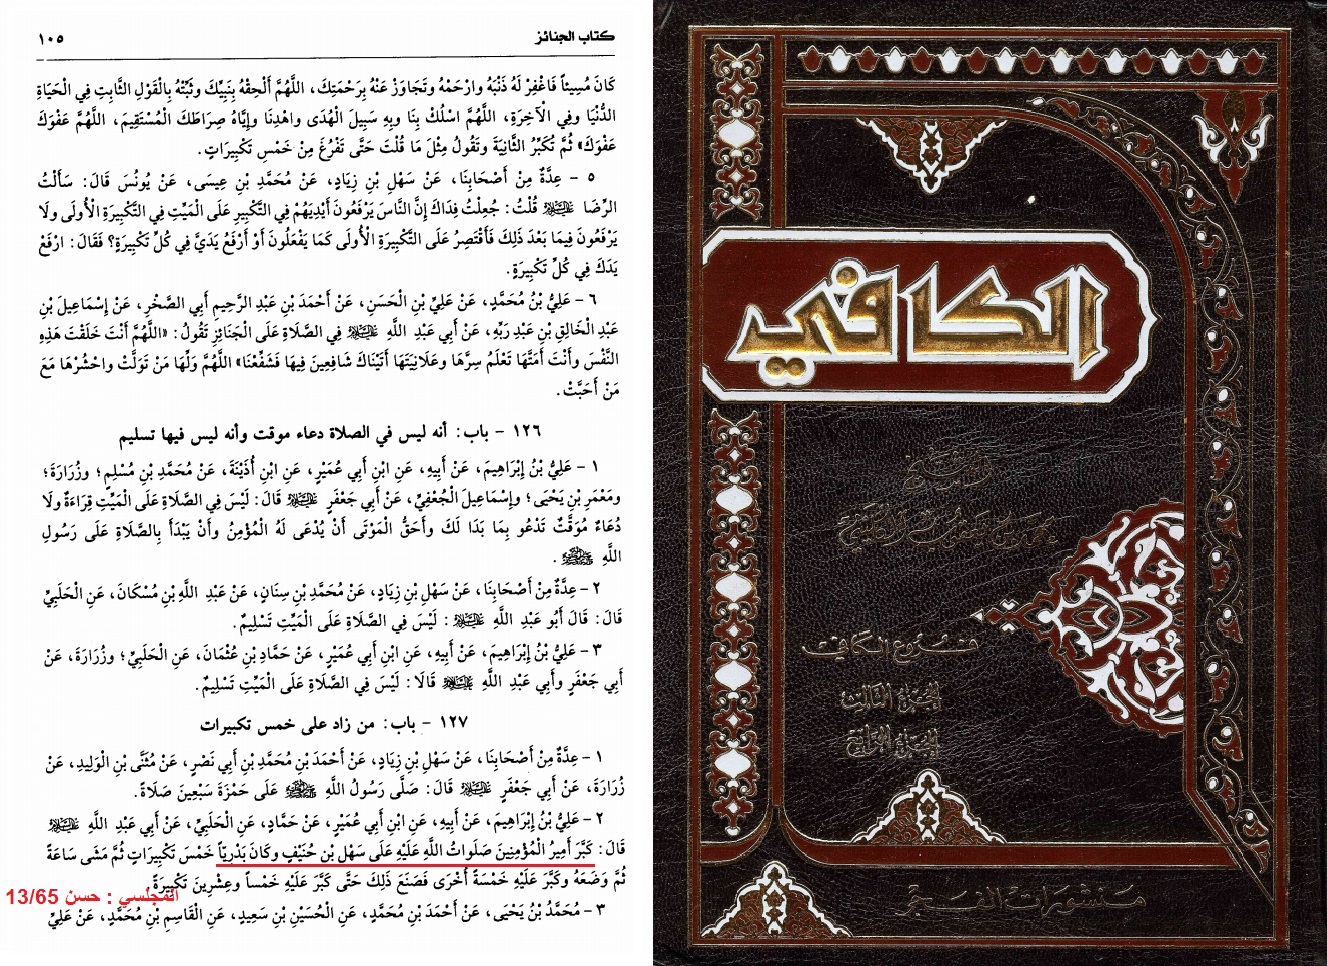 كتاب الجنائز
١٠٥
كَانَ مُسِيئاً فَاغْفِرْ لَهُ ذَنْبَهُ وارْحَمْهُ وتَجَاوَزْ عَنْهُ بِرَحْمَتِكَ، اللَّهُمَّ أَلْحِقْهُ بِنَبِيِّكَ وثَبِّتْهُ بِالْقَوْلِ الثَّابِتِ فِي الْحَيَاةِ
الدُّنْيَا وفِي الْآخِرَةِ، اللَّهُمَّ اسْلُكْ بِنَا وبِهِ سَبِيلَ الْهُدَى واهْدِنَا وإِيَّاهُ صِرَاطَكَ الْمُسْتَقِيمَ، اللَّهُمَّ عَفْوَكَ
عَفْوَكَ» ثُمَّ تُكَبِّرُ الثَّانِيَةَ وتَقُولُ مِثْلَ مَا قُلْتَ حَتَّى تَفْرُغَ مِنْ خَمْسِ تَكْبِيرَاتٍ.
٥ - عِدَّةٌ مِنْ أَصْحَابِنَا، عَنْ سَهْلِ بْنِ زِيَادٍ، عَنْ مُحَمَّدِ بْنِ عِيسَى، عَنْ يُونُسَ قَالَ: سَأَلْتُ
الرِّضَا عليه السلام قُلْتُ: جُعِلْتُ فِدَاكَ إِنَّ النَّاسَ يَرْفَعُونَ أَيْدِيَهُمْ فِي التَّكْبِيرِ عَلَى الْمَيِّتِ فِي التَّكْبِيرَةِ الْأُولَى ولَا
يَرْفَعُونَ فِيمَا بَعْدَ ذَلِكَ فَأَقْتَصِرُ عَلَى التَّكْبِيرَةِ الْأُولَى كَمَا يَفْعَلُونَ أَوْ أَرْفَعُ يَدَيَّ فِي كُلِّ تَكْبِيرَةٍ؟ فَقَالَ: ارْفَعْ
يَدَكَ فِي كُلِّ تَكْبِيرَةٍ.
٦ - عَلِيُّ بْنُ مُحَمَّدٍ، عَنْ عَلِيِّ بْنِ الْحَسَنِ، عَنْ أَحْمَدَ بْنِ عَبْدِ الرَّحِيمِ أَبِي الصَّخْرِ، عَنْ إِسْمَاعِيلَ بْنِ
عَبْدِ الْخَالِقِ بْنِ عَبْدِ رَبِّهِ، عَنْ أَبِي عَبْدِ اللَّهِ عليه السلام فِي الصَّلَاةِ عَلَى الْجَنَائِزِ تَقُولُ: «اللَّهُمَّ أَنْتَ خَلَقْتَ هَذِهِ
النَّفْسَ وأَنْتَ أَمَتَّهَا تَعْلَمُ سِرَّهَا وعَلَانِيَتَهَا أَتَيْنَاكَ شَافِعِينَ فِيهَا فَشَفِّعْنَا» اللَّهُمَّ وَلِّهَا مَنْ تَوَلَّتْ واحْشُرْهَا مَعَ
مَنْ أَحَبَّتْ.
١٢٦ - باب: أنه ليس في الصلاة دعاء موقت وأنه ليس فيها تسليم
١ - عَلِيُّ بْنُ إِبْرَاهِيمَ، عَنْ أَبِيهِ، عَنِ ابْنِ أَبِي عُمَيْرٍ، عَنِ ابْنِ أُذَيْنَةَ، عَنْ مُحَمَّدِ بْنِ مُسْلِمٍ؛ وزُرَارَةَ؛
ومَعْمَرِ بْنِ يَحْيَى؛ وإِسْمَاعِيلَ الْجُعْفِيِّ، عَنْ أَبِي جَعْفَرٍ عليه السلام قَالَ: لَيْسَ فِي الصَّلَاةِ عَلَى الْمَيِّتِ قِرَاءَةٌ ولَا
دُعَاءٌ مُوَقَّتٌ تَدْعُو بِمَا بَدَا لَكَ وأَحَقُّ الْمَوْتَى أَنْ يُدْعَى لَهُ الْمُؤْمِنُ وأَنْ يَبْدَأَ بِالصَّلَاةِ عَلَى رَسُولِ
اللَّهِ صلى الله عليه وآله.
٢ - عِدَّةٌ مِنْ أَصْحَابِنَا، عَنْ سَهْلِ بْنِ زِيَادٍ، عَنْ مُحَمَّدِ بْنِ سِنَانٍ، عَنْ عَبْدِ اللَّهِ بْنِ مُسْكَانَ، عَنِ الْحَلَبِيِّ
قَالَ: قَالَ أَبُو عَبْدِ اللَّهِ عليه السلام: لَيْسَ فِي الصَّلَاةِ عَلَى الْمَيِّتِ تَسْلِيمٌ.
٣ - عَلِيُّ بْنُ إِبْرَاهِيمَ، عَنْ أَبِيهِ، عَنِ ابْنِ أَبِي عُمَيْرٍ، عَنْ حَمَّادِ بْنِ عُثْمَانَ، عَنِ الْحَلَبِيِّ؛ وزُرَارَةَ، عَنْ
أَبِي جَعْفَرٍ وأَبِي عَبْدِ اللَّهِ عليه السلام قَالَا: لَيْسَ فِي الصَّلَاةِ عَلَى الْمَيِّتِ تَسْلِيمٌ.
١٢٧ - باب: من زاد على خمس تكبيرات
١ - عِدَّةٌ مِنْ أَصْحَابِنَا، عَنْ سَهْلِ بْنِ زِيَادٍ، عَنْ أَحْمَدَ بْنِ مُحَمَّدِ بْنِ أَبِي نَصْرٍ، عَنْ مُثَنَّى بْنِ الْوَلِيدِ، عَنْ
زُرَارَةَ، عَنْ أَبِي جَعْفَرٍ عليه السلام قَالَ: صَلَّى رَسُولُ اللَّهِ صلى الله عليه وآله عَلَى حَمْزَةَ سَبْعِينَ صَلَاةً.
٢ - عَلِيُّ بْنُ إِبْرَاهِيمَ، عَنْ أَبِيهِ، عَنِ ابْنِ أَبِي عُمَيْرٍ، عَنْ حَمَّادٍ، عَنِ الْحَلَبِيِّ، عَنْ أَبِي عَبْدِ اللَّهِ عليه السلام
قَالَ: كَبَّرَ أَمِيرُ الْمُؤْمِنِينَ صَلَوَاتُ اللَّهِ عَلَيْهِ عَلَى سَهْلِ بْنِ حُنَيْفٍ وكَانَ بَدْرِيّاً خَمْسَ تَكْبِيرَاتٍ ثُمَّ مَشَى سَاعَةً
ثُمَّ وَضَعَهُ وكَبَّرَ عَلَيْهِ خَمْسَةً أُخْرَى فَصَنَعَ ذَلِكَ حَتَّى كَبَّرَ عَلَيْهِ خَمْساً وعِشْرِينَ تَكْبِيرَةً.
المجلسي : حسن 13/65
٣ - مُحَمَّدُ بْنُ يَحْيَى، عَنْ أَحْمَدَ بْنِ مُحَمَّدٍ، عَنِ الْحُسَيْنِ بْنِ سَعِيدٍ، عَنِ الْقَاسِمِ بْنِ مُحَمَّدٍ، عَنْ عَلِيِّ
الكافي
محمد بن يعقوب الكليني
فروع الكافي
الجزء الثالث
الجزء الرابع
منشورات الفجر